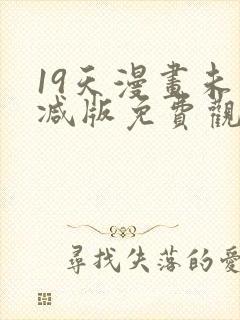 19天漫畫未
減版免費觀
尋找失落的愛